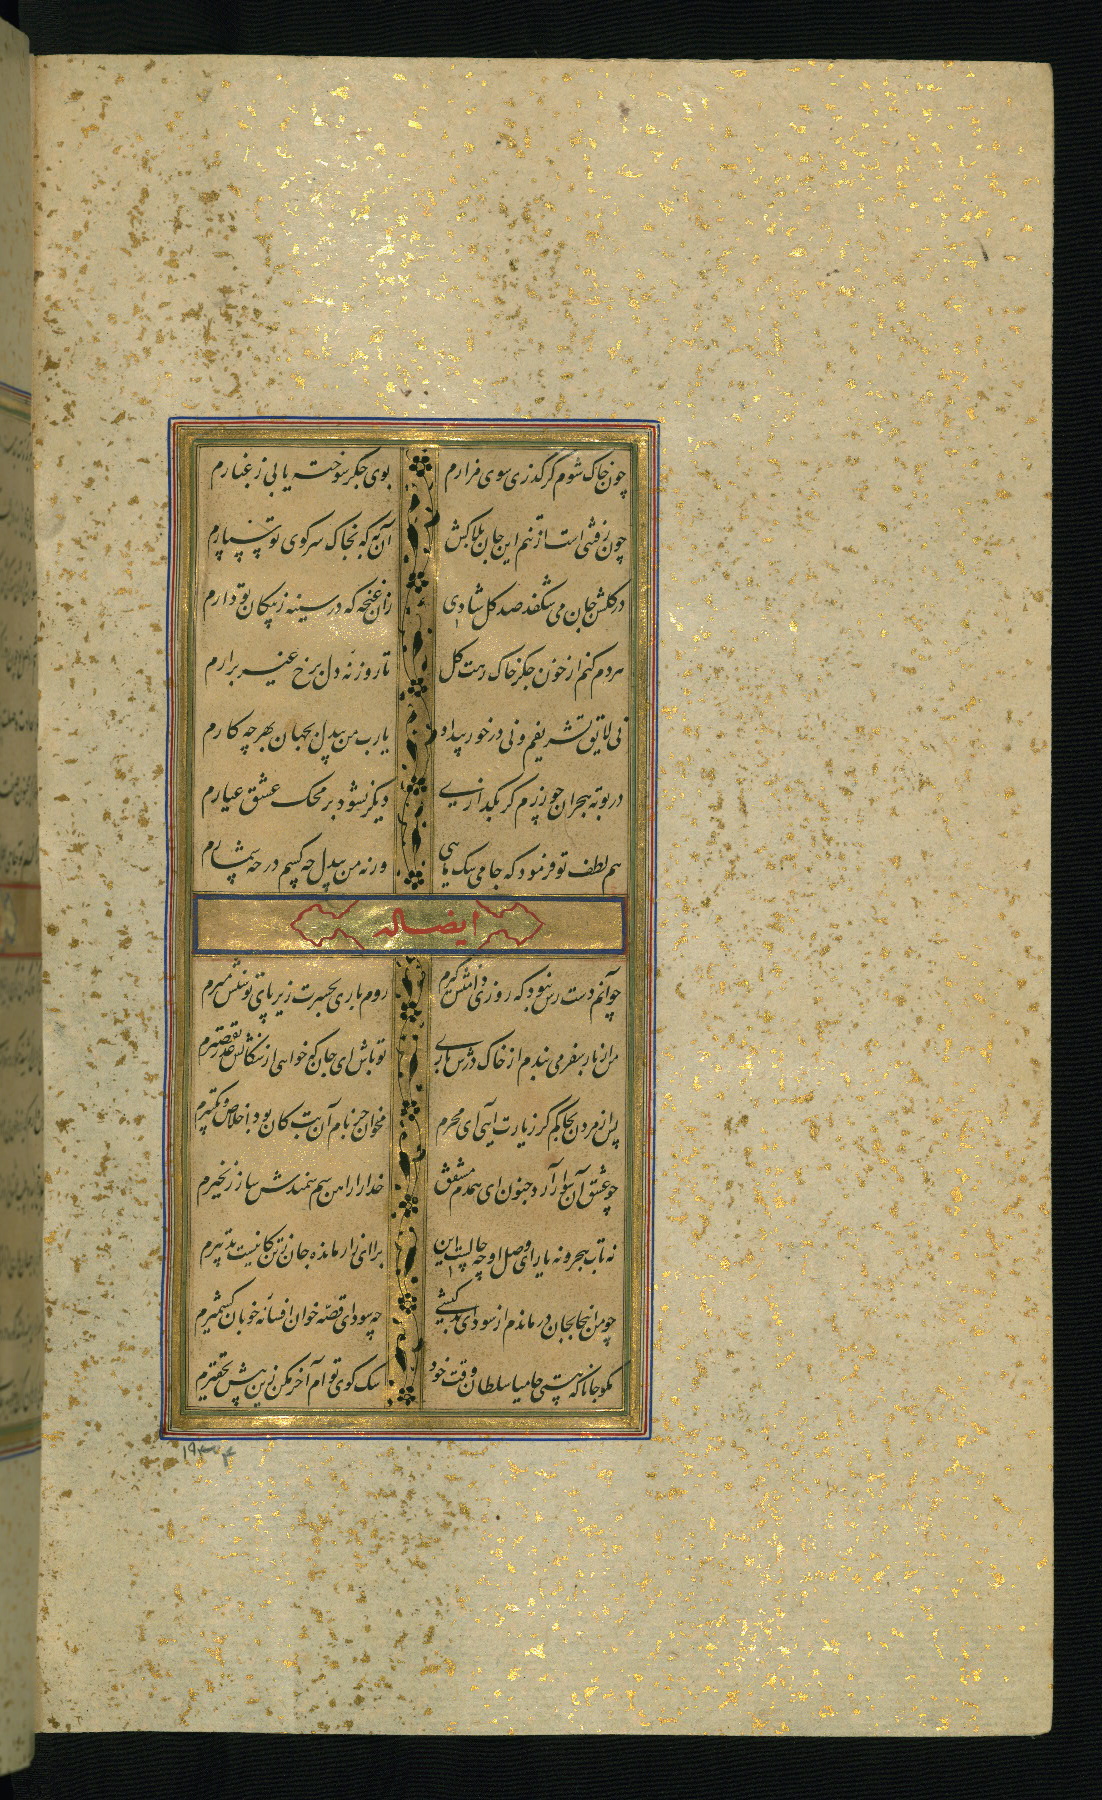 چون خاک شوم گر گذری سوی مزارم بوی جگر سوخته یابی ز غبارم
چون رفتنی است از تنم این جان بلاکش آن به که بخاک سر کوی تو سپارم
در گلشن جان می شکفد صد گل شادی زان غنچه که در سینه ز پیکان تو دارم
هر دم کنم از خون جگر خاک رهت گل تا روزنه دل برخ غیر برارم
نی لایق تشریفم و نی در خور بیداد یارب من بیدل بجهان بهر چه کارم
در بوته هجران چو زرم گر بگدازی دیگر نشود بر محک عشق عیارم
هم لطف تو فرمود که جامی سگ مایی ورنه من بیدل چه کسم در چه شمارم
ایضا له
چو آنم دست رس نبود که روزی دامنش گیرم روم باری بحسرت زیر پای توسنش میرم
من از بار سفر می بندم از خاک درش باری تو باش ای جان که خواهی از سگانش عذر تقصیرم
پس از مردن بخاکم گر زیارت آیی ای محرم مخوان جز نام آن بت کان بود اخلاص و تکبیرم
چو عشق آن سوار آرد جنون ای همدم مشفق خدا را از آهن سم سمندش ساز زنجیرم
نه تاب هجر و نه یارای وصل او چه حالست این برای زار مانده جان من کانیست تدبیرم
چو من اینجا بجان در ماندم از سودای بدکیشی چه سود ای قصه خوان افسانه خوبان کشمیرم
مگو جانا که هستی جامیا سلطان وقت خود سگ کوی تو ام آخر مکن زین بیش تحقیرم
۱۹۴۴